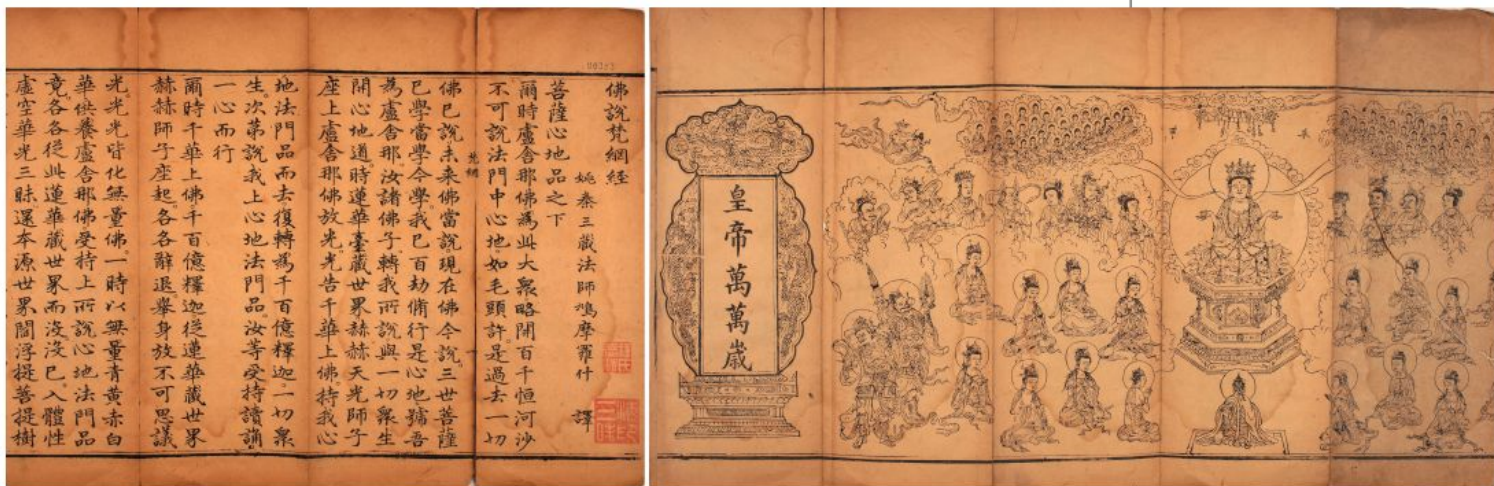 佛說梵網經
姚秦三藏法師鳩摩羅什 譯
菩薩心地品之下
爾時盧舍那佛為此大衆略開百千恒河沙
不可說法門中心地。如毛頭許。是過去一切
梵網
佛已說。未來佛當說。現在佛今說。三世菩薩
已學當學今學。我已百劫脩行是心地。號吾
為盧舍那。汝諸佛子轉我所說。與一切衆生
開心地道。時蓮華臺藏世界赫赫天光師子
座上盧舍那佛放光。光告千華上佛。持我心
地法門品而去。復轉為千百億釋迦。一切衆
生。次第說我上心地法門品。汝等受持讀誦
一心而行
爾時千華上佛千百億釋迦。從蓮華藏世界
赫赫師子座起。各各辭退舉身放不可思議
光。光光皆化無量佛。一時以無量青黃赤白
華供養盧舍那佛。受持上所說心地法門品
竟。各各從此蓮華藏世界而沒。沒已。入體性
虛空華光三昧。還本源世界閻浮提菩提樹
皇帝萬萬歲